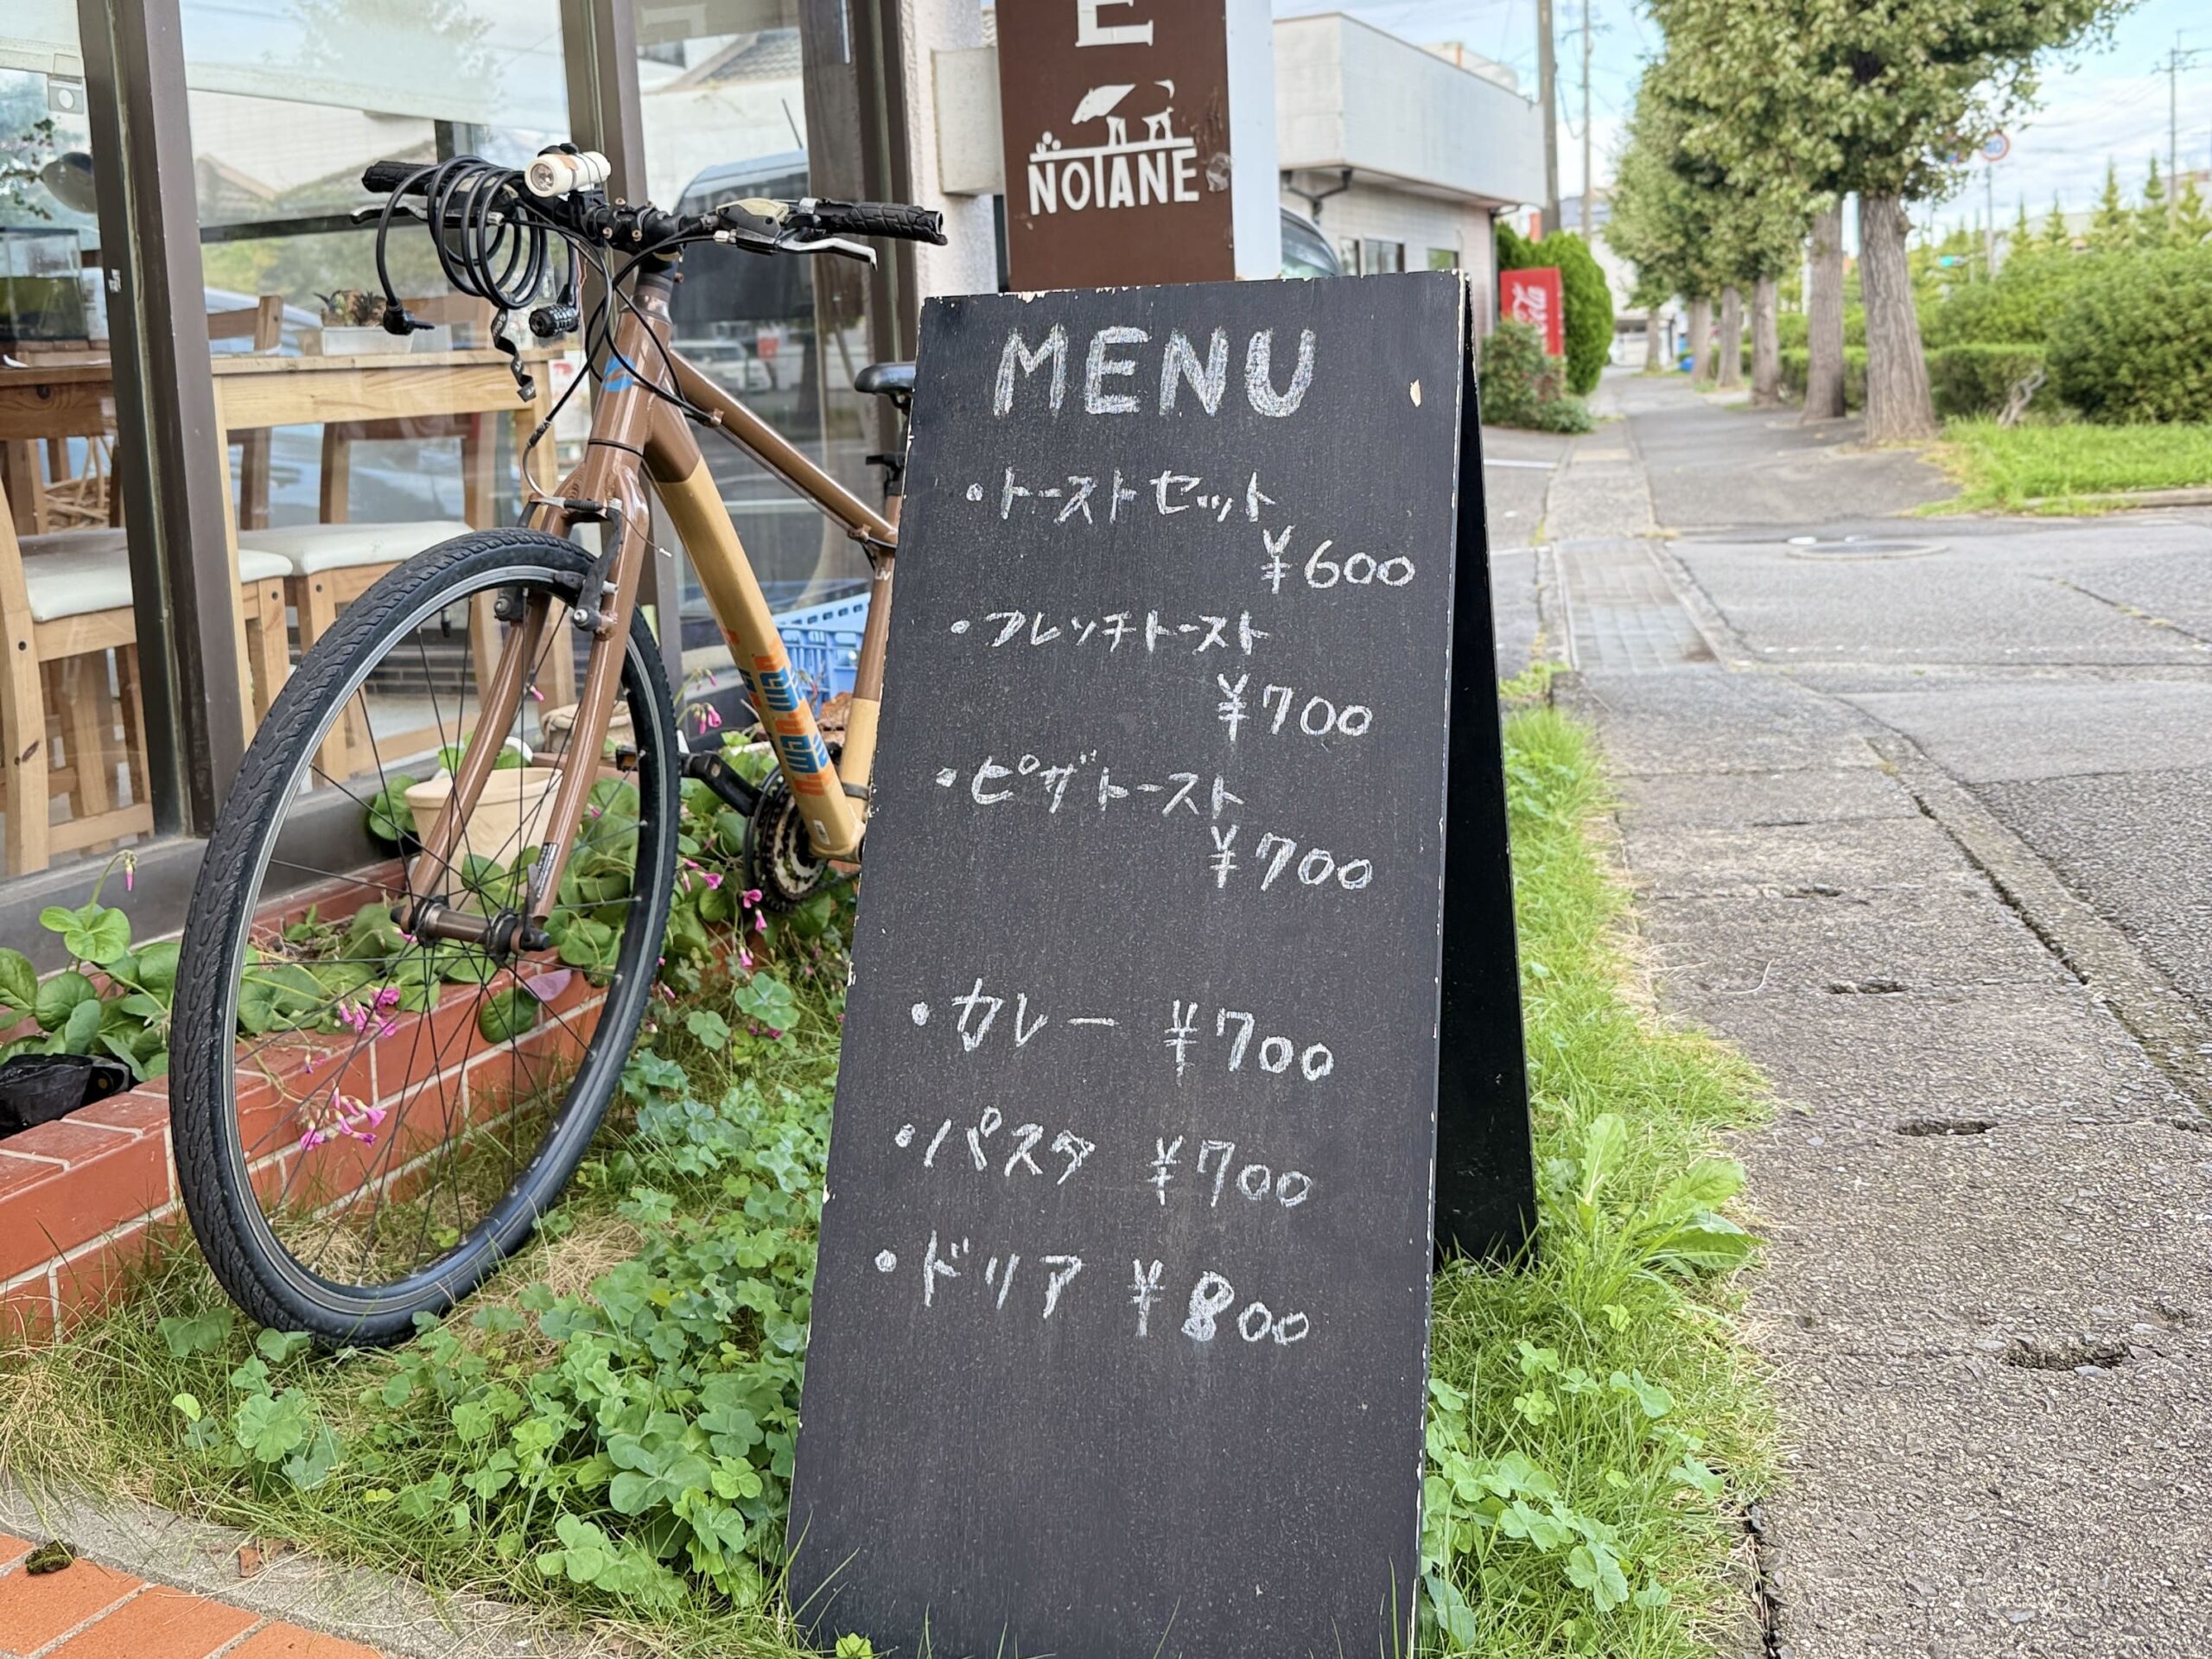 E
NOTANE
MENU
・トーストセット
¥600
・フレンチトースト
¥700
・ピザトースト
¥700
・カレー ¥700
・パスタ ¥700
・ドリア ¥800